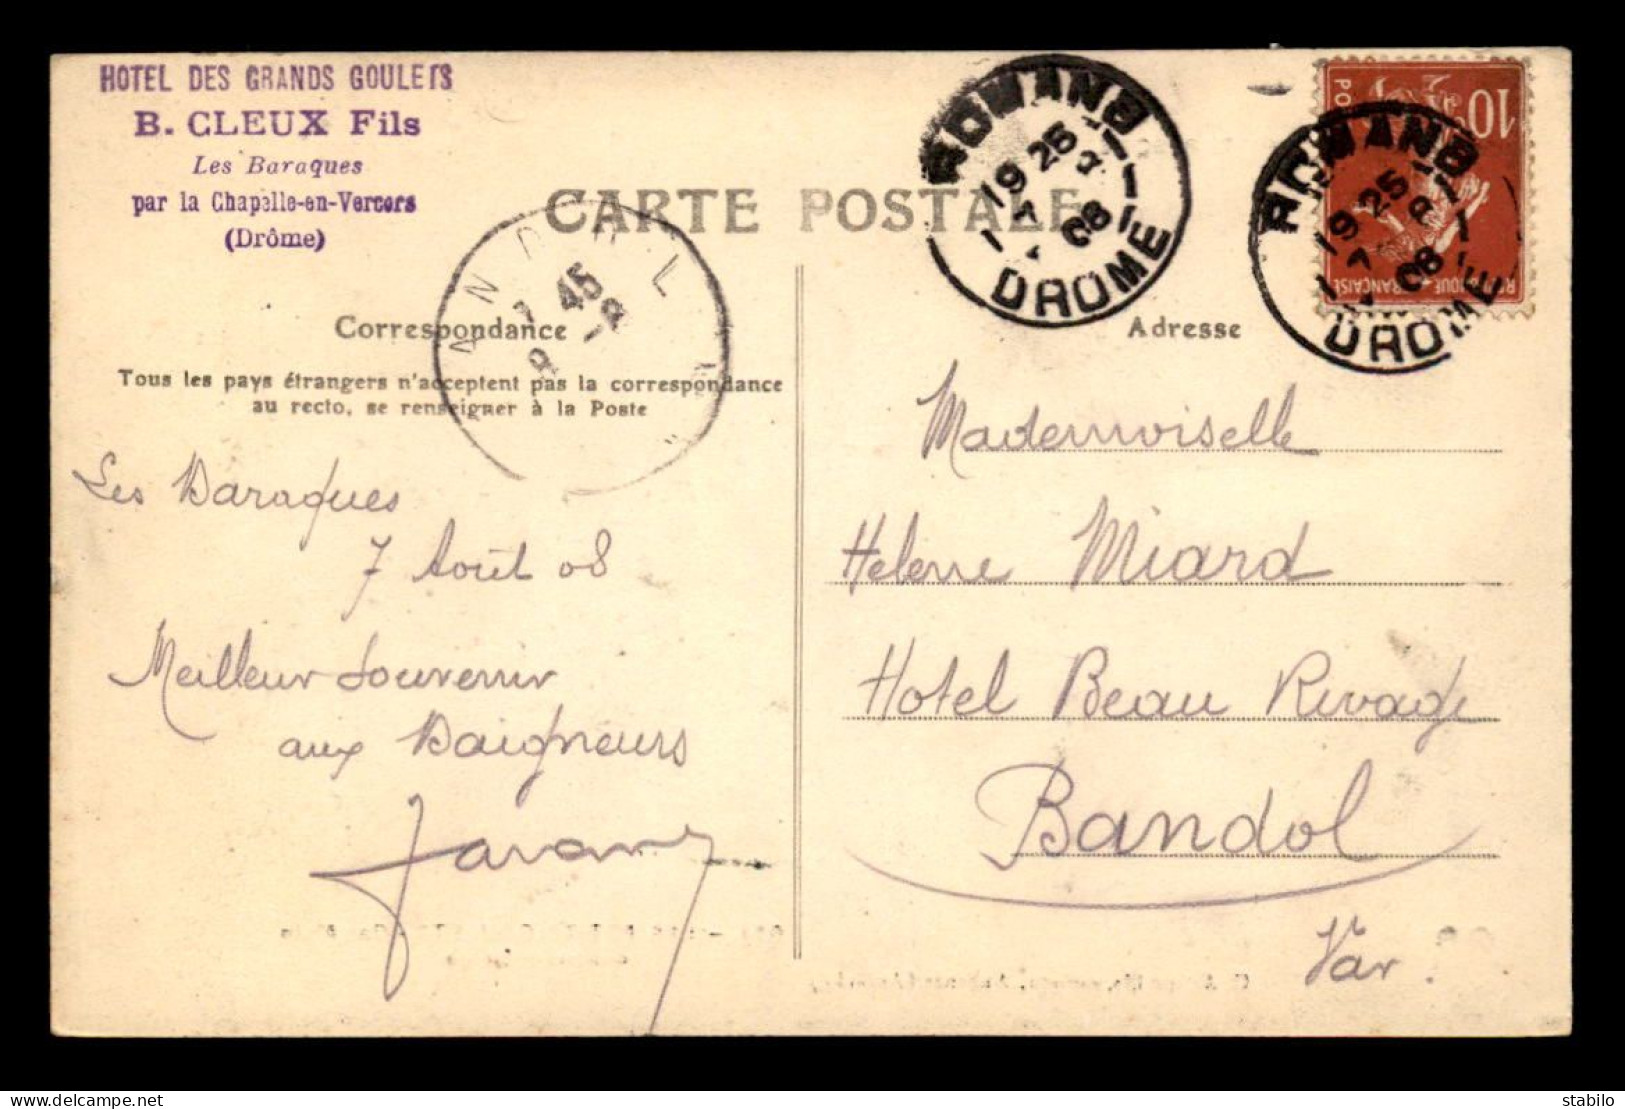 HOTEL DES GRANDS GOULETS
B. CLEUX Fils
Les Baraques
par la Chapelle-en-Vercors
(Drôme)
CARTE POSTALE
ROMANS
19 25
7 8
08
DROME
ROMANS
19 25
7 8
08
DROME
10
BANDOL
7 45
8 -8
Correspondance
Tous les pays étrangers n'acceptent pas la correspondance
au recto, se renseigner à la Poste
Les Baraques
7 Août 08
Meilleur souvenir
aux Baigneurs
Adresse
Mademoiselle
Helene Miard
Hotel Beau Rivage
Bandol
Var.
delcampe.net
stabilo